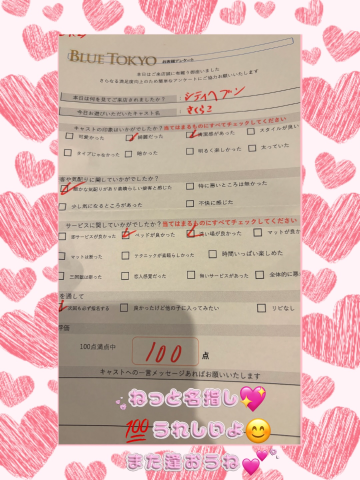 BLUE TOKYO お客様アンケート
本日はご来店頂き有難う御座いました
さらなる満足度向上のため簡単なアンケートにご協力お願いいたします
本日は何を見てご来店されましたか？ シティヘブン
今日お遊びいただいたキャスト名 さくらこ
キャストの印象はいかがでしたか？当てはまるものにすべてチェックしてください
可愛かった 綺麗だった 清潔感があった スタイルが良い
タイプじゃなかった 細かった 明るく楽しかった 太っていた
客や気配りに関していかがでしたか？
細かな気配りがあり素晴らしい接客と感じた 特に悪いところは無かった
少し気になるところがあった 不快に感じた
サービスに関していかがでしたか？当てはまるものにすべてチェックしてください
全サービスが良かった ベッドが良かった 洗い場が良かった マットが良か
マットは悪かった テクニックが素晴らしかった 時間いっぱい楽しめた
二回戦は移った 恋人感覚だった 無いサービスがあった 全体的に悪
を通して
次回も必ず指名する 良かったけど他の子に入ってみたい リピなし
評価
100点満点中 100 点
キャストへの一言メッセージあればお願いいたします
ねっと名指し💖
💯うれしいよ😊
また逢おうね💕